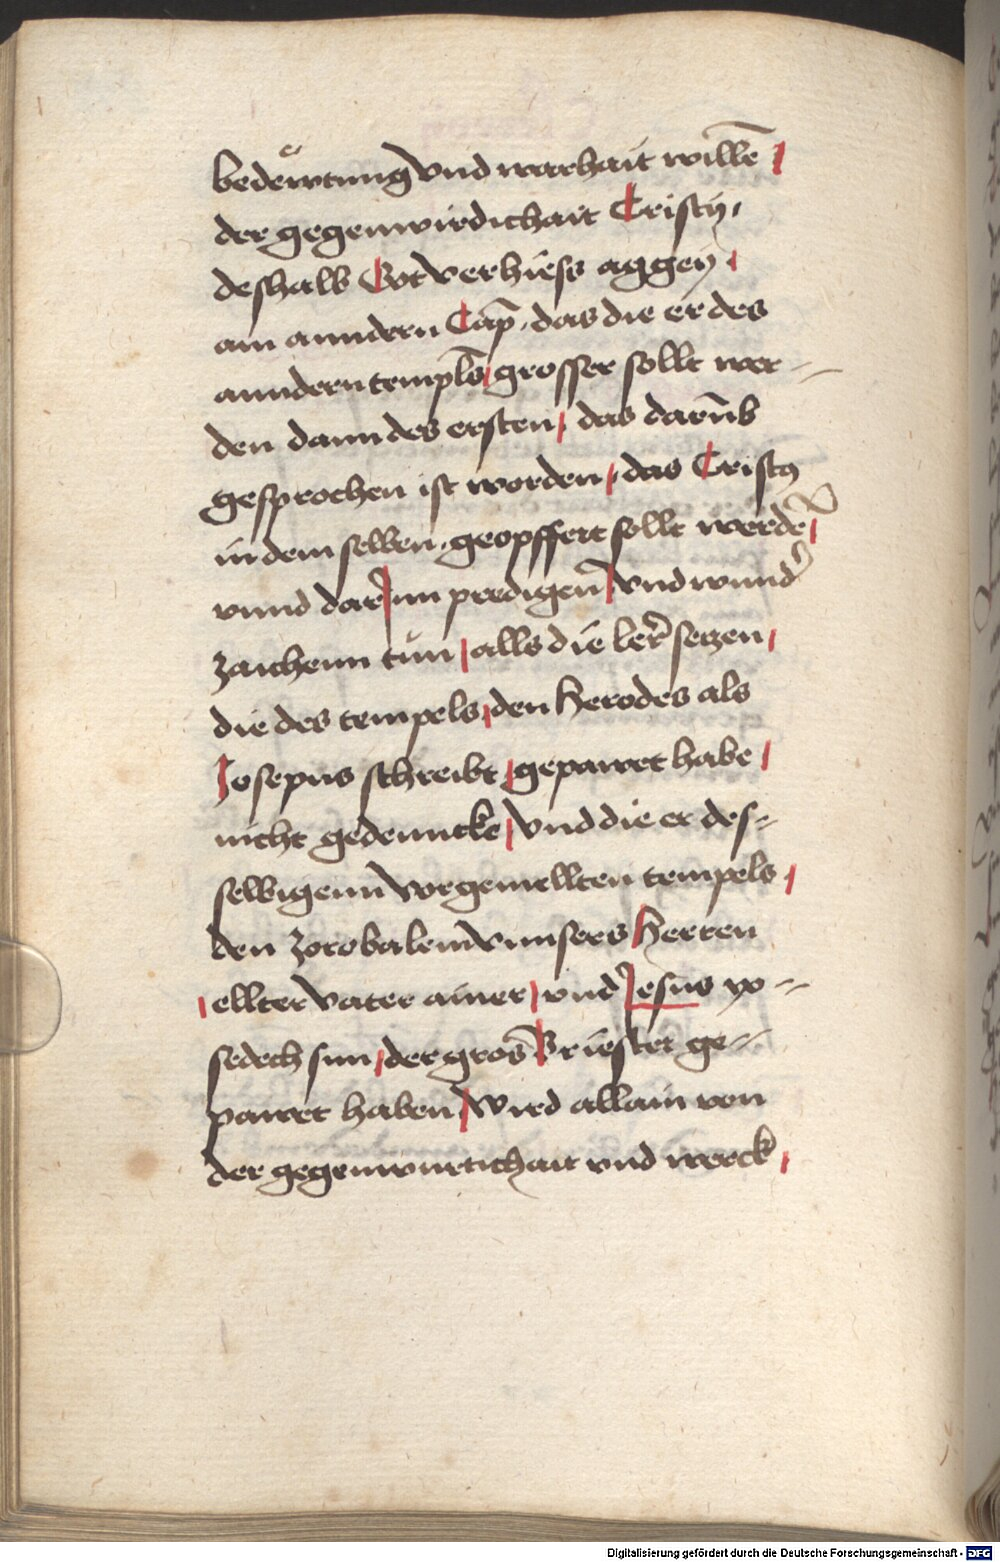 bedeẘtung vnd warhait willē
der gegenwirdichait Cristÿ,
deshalb Got verhiess aggeÿ
am anndern Cap̄. das die er des
anndern templs̄ grosser sollt wer=
den dann des ersten, das darūb
gesprochen ist worden, das Cristꝰ
in dem selben geopffert sollt werdē
vnnd dar Inn predigen̄ vnd wund̾
zaichenn tůn alls die ler̾ setzen,
die des tempels, den Herodes als
Josepus schreibt gepawet habe
nicht gedenncke, vnd die er des=
selbigenn vorgemellten tempels,
den zorobalem vnnsers Herren
ellter vater ainer, vnd Jesus yo=
sedech sun, der gros̄ Briester ge=
pawet haben, wird allain von
der gegenwurtichait vnd werck,
Digitalisierung gefördert durch die Deutsche Forschungsgemeinschaft - DFG